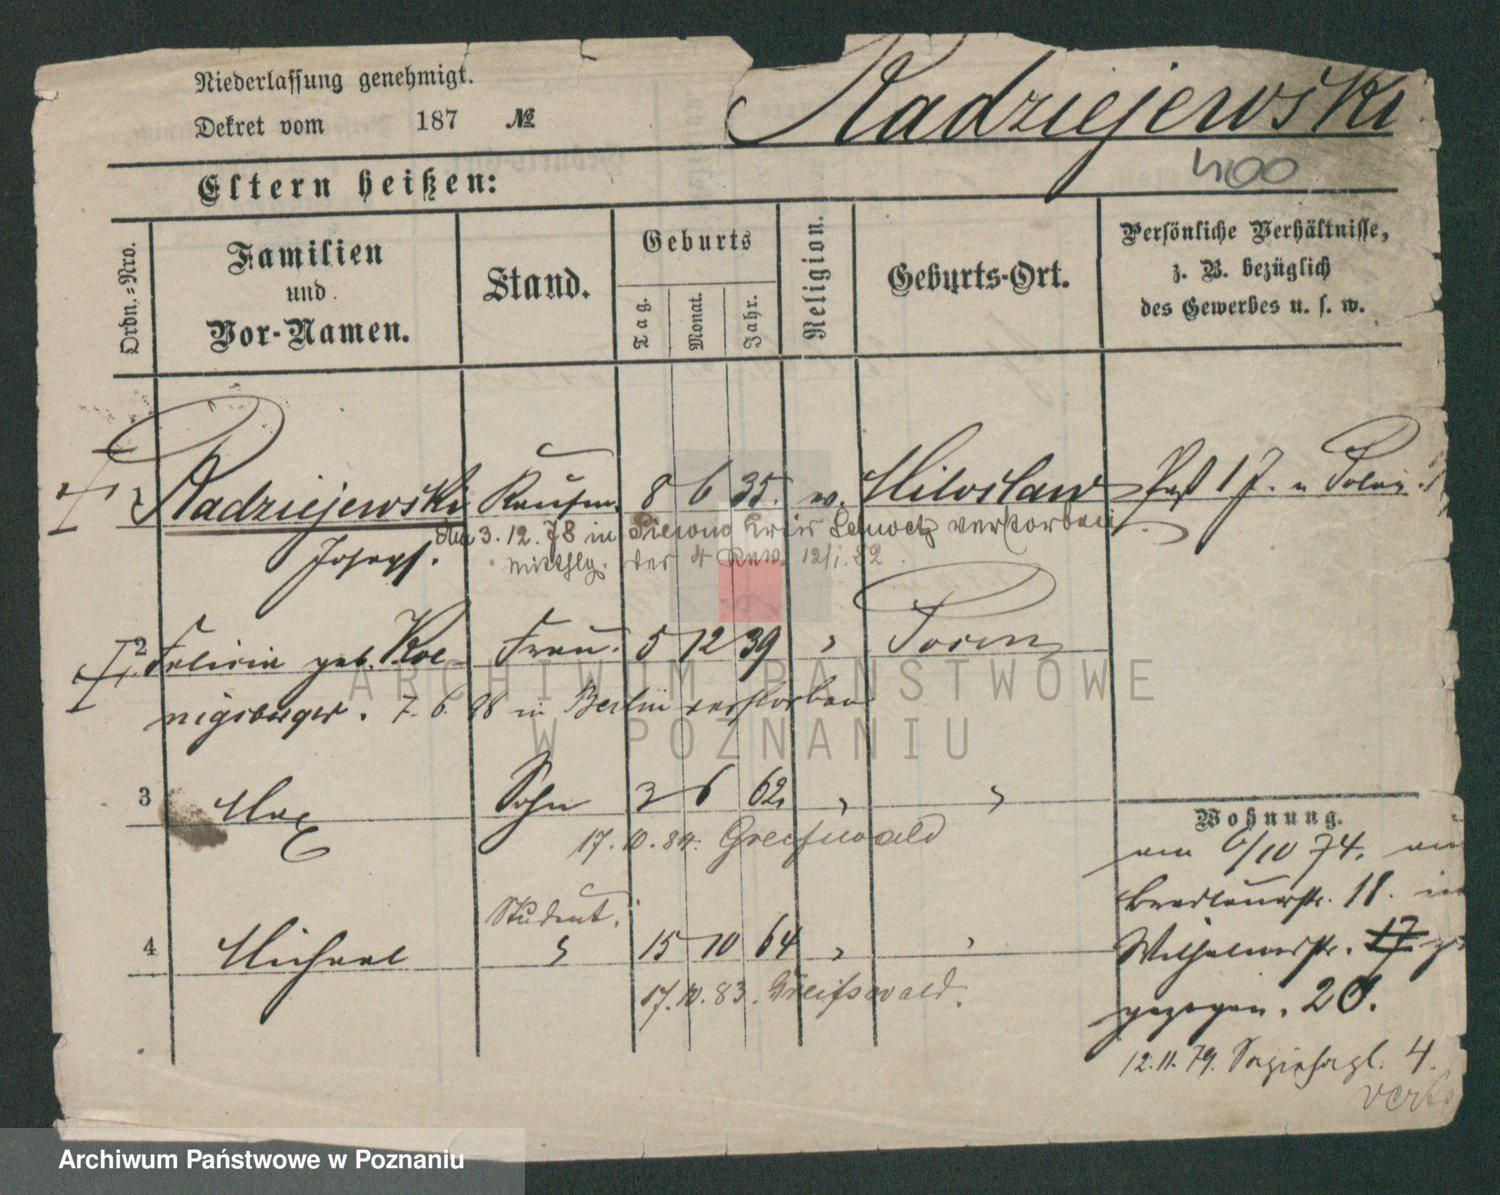 Niederlassung genehmigt.
Dekret vom 187 №
Radziejewski
400
Eltern heißen:
Ordn.-Nro.
Familien
und
Vor-Namen.
Stand.
Geburts
Tag.
Monat.
Jahr.
Religion.
Geburts-Ort.
Persönliche Verhältnisse,
z. B. bezüglich
des Gewerbes u. s. w.
1 Radziejewski Kaufm. 8 6 35. m. Miloslaw Paß 1 J. n Polen.
Joseph. 3. 12. 78 in Kreis verstorben
des 4 Rew. 12/1. 82.
2 Felicia geb. Koe- Frau. 5 12 39 " Posen
nigsberger. 7. 6. 88 in Berlin verstorben
3 Max Sohn 3 6 62 " "
17. 10. 84. Greifswald
Student.
4 Michael " 15 10 64 " "
17. 10. 83. Greifswald.
Wohnung.
am 6/10 74. von
Breslauerstr. 18. in
Wilhelmstr. 17
gezogen. 20.
12. 11. 79. Sapiehapl. 4.
ARCHIWUM PAŃSTWOWE
W POZNANIU
Archiwum Państwowe w Poznaniu